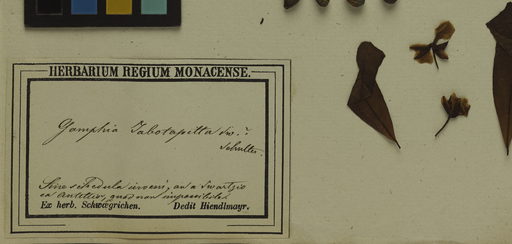 HERBARIUM REGIUM MONACENSE.
Gomphia Jabotapitta Sw.?
Schultes.
Sine schedula inveni, an a Swartzio
ex Antillis, quod non impossibile.
Ex herb. Schwægrichen. Dedit Hiendlmayr.